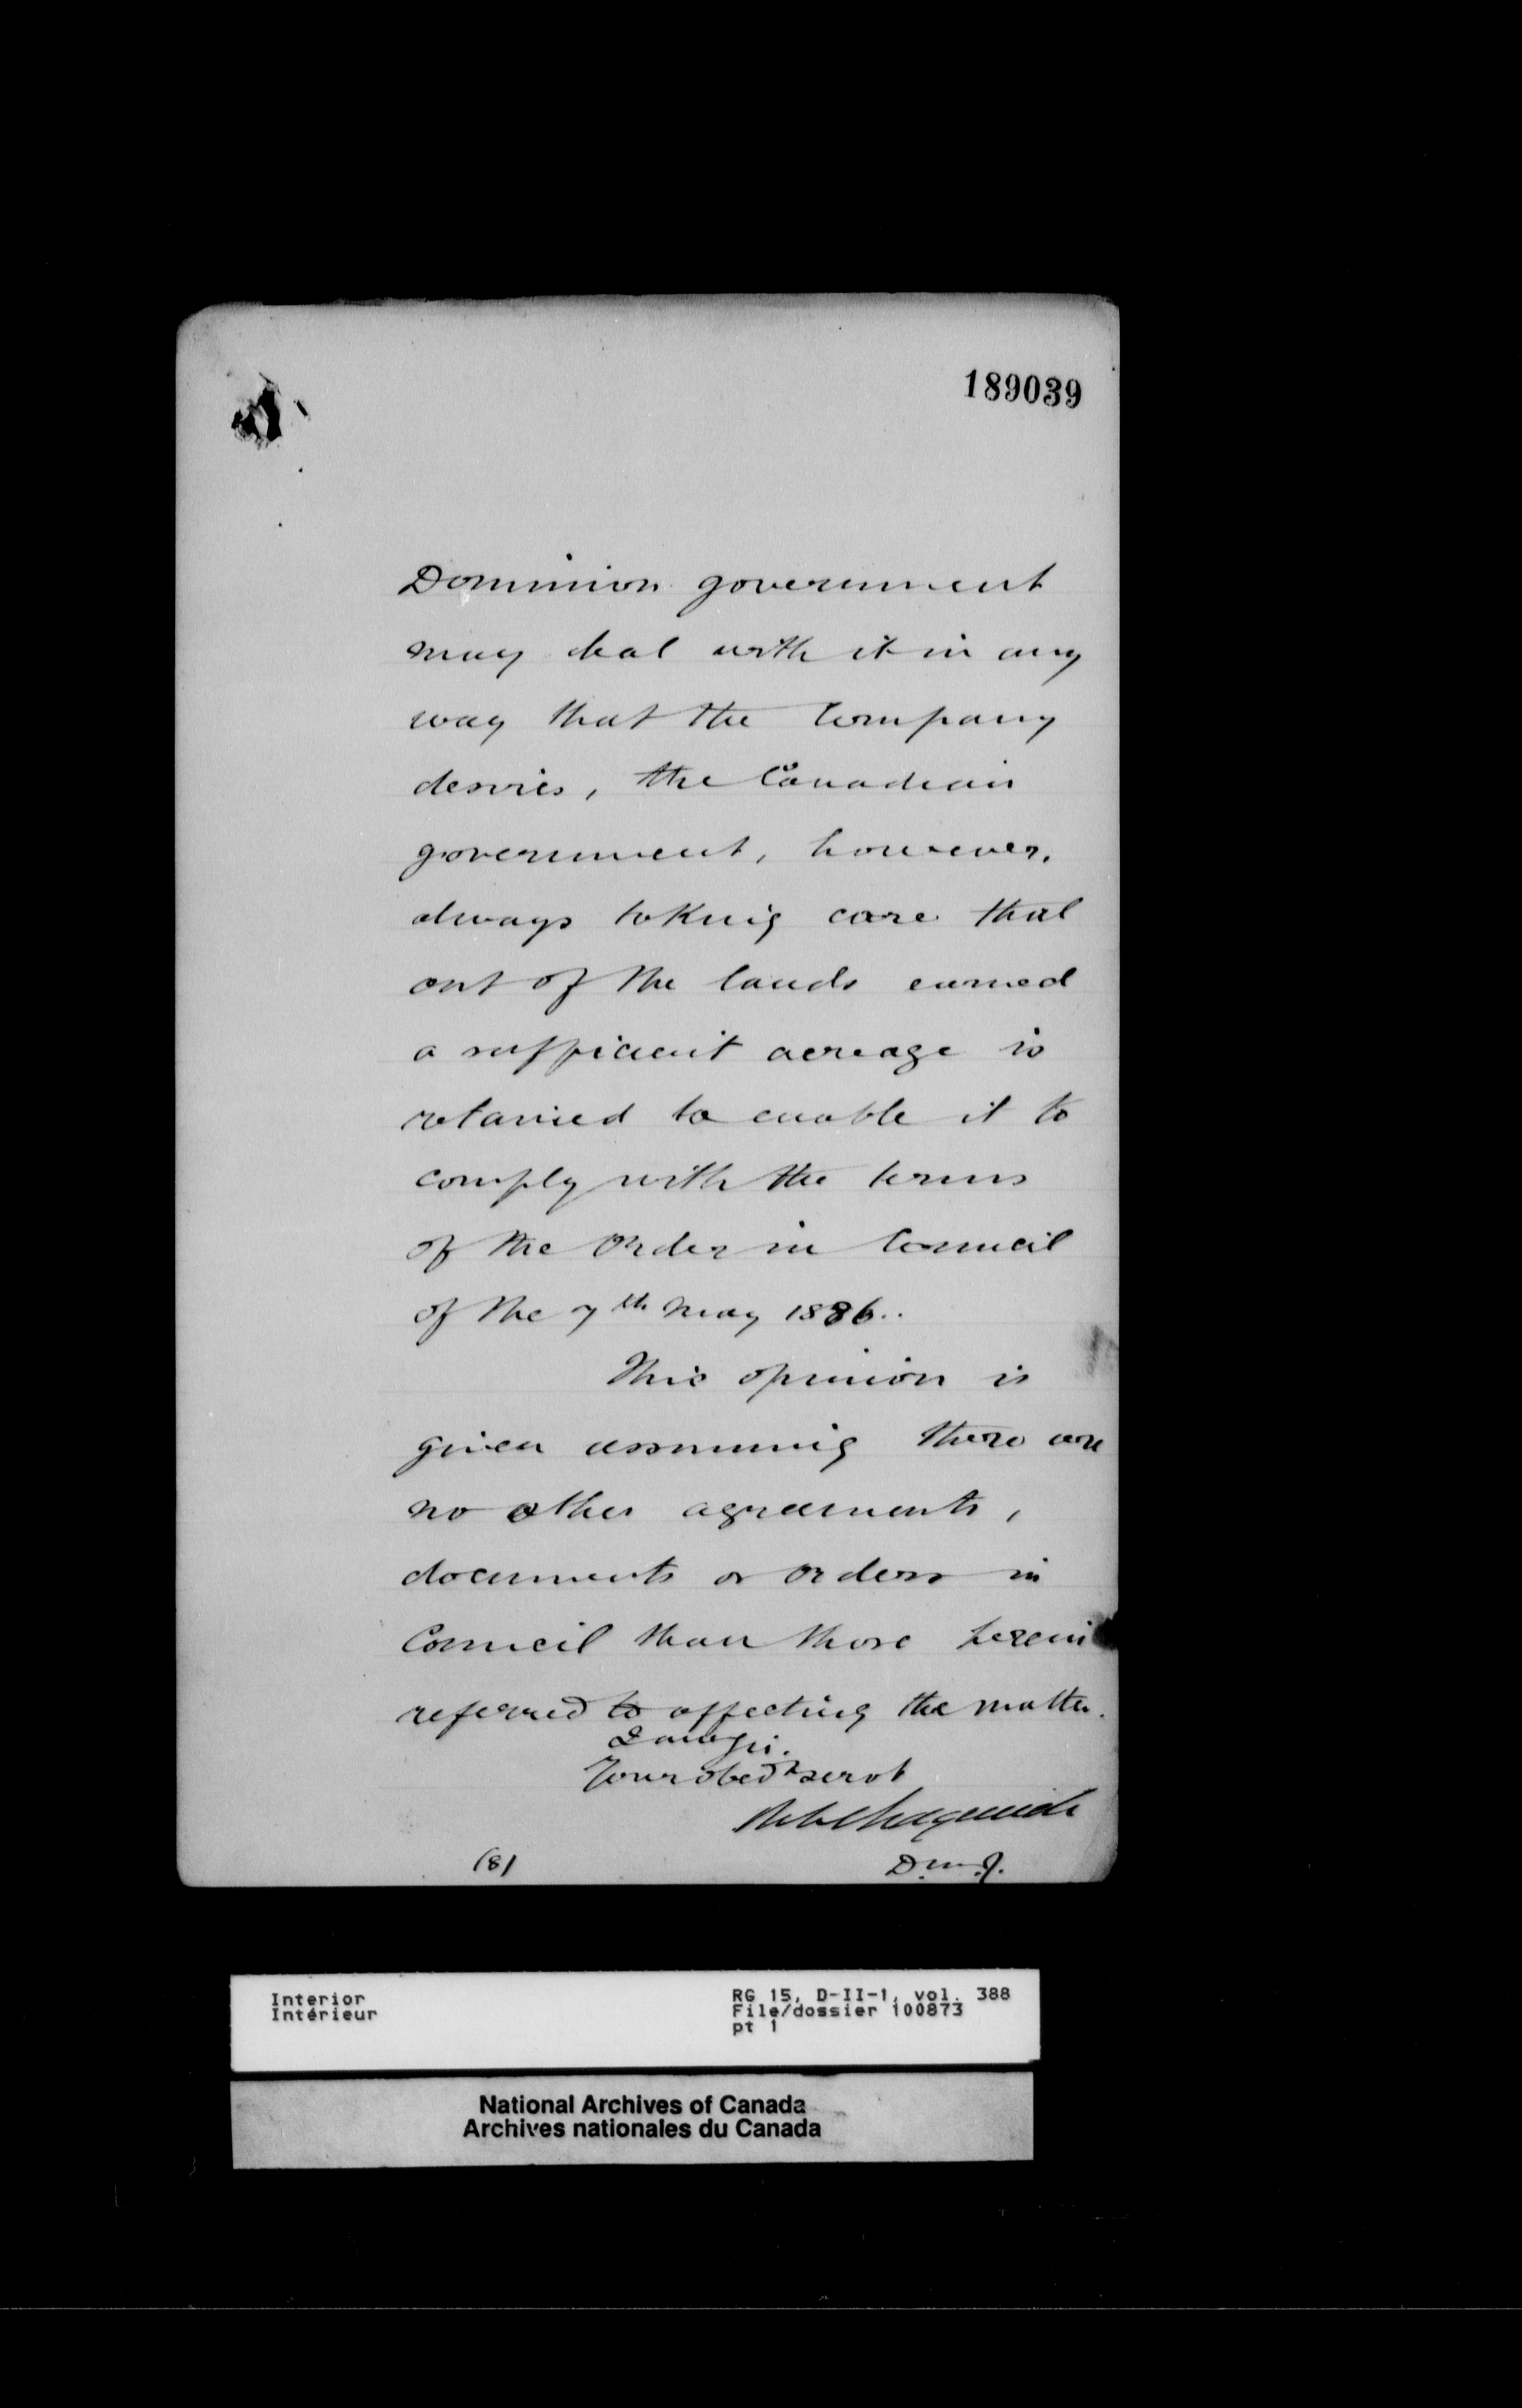 189039
Dominion government
may deal with it in any
way that the Company
desires, the Canadian
government, however,
always taking care that
out of the lands earned
a sufficient acreage is
retained to enable it to
comply with the terms
of the Order in Council
of the 7th May 1886..
This opinion is
given assuming there are
no other agreements,
documents or orders in
Council than those herein
referred to affecting the matter.
I am Sir.
Your obedt servt
D.M.J.
(8)
Interior
Intérieur
RG 15, D-II-1, vol. 388
File/dossier 100873
pt 1
National Archives of Canada
Archives nationales du Canada